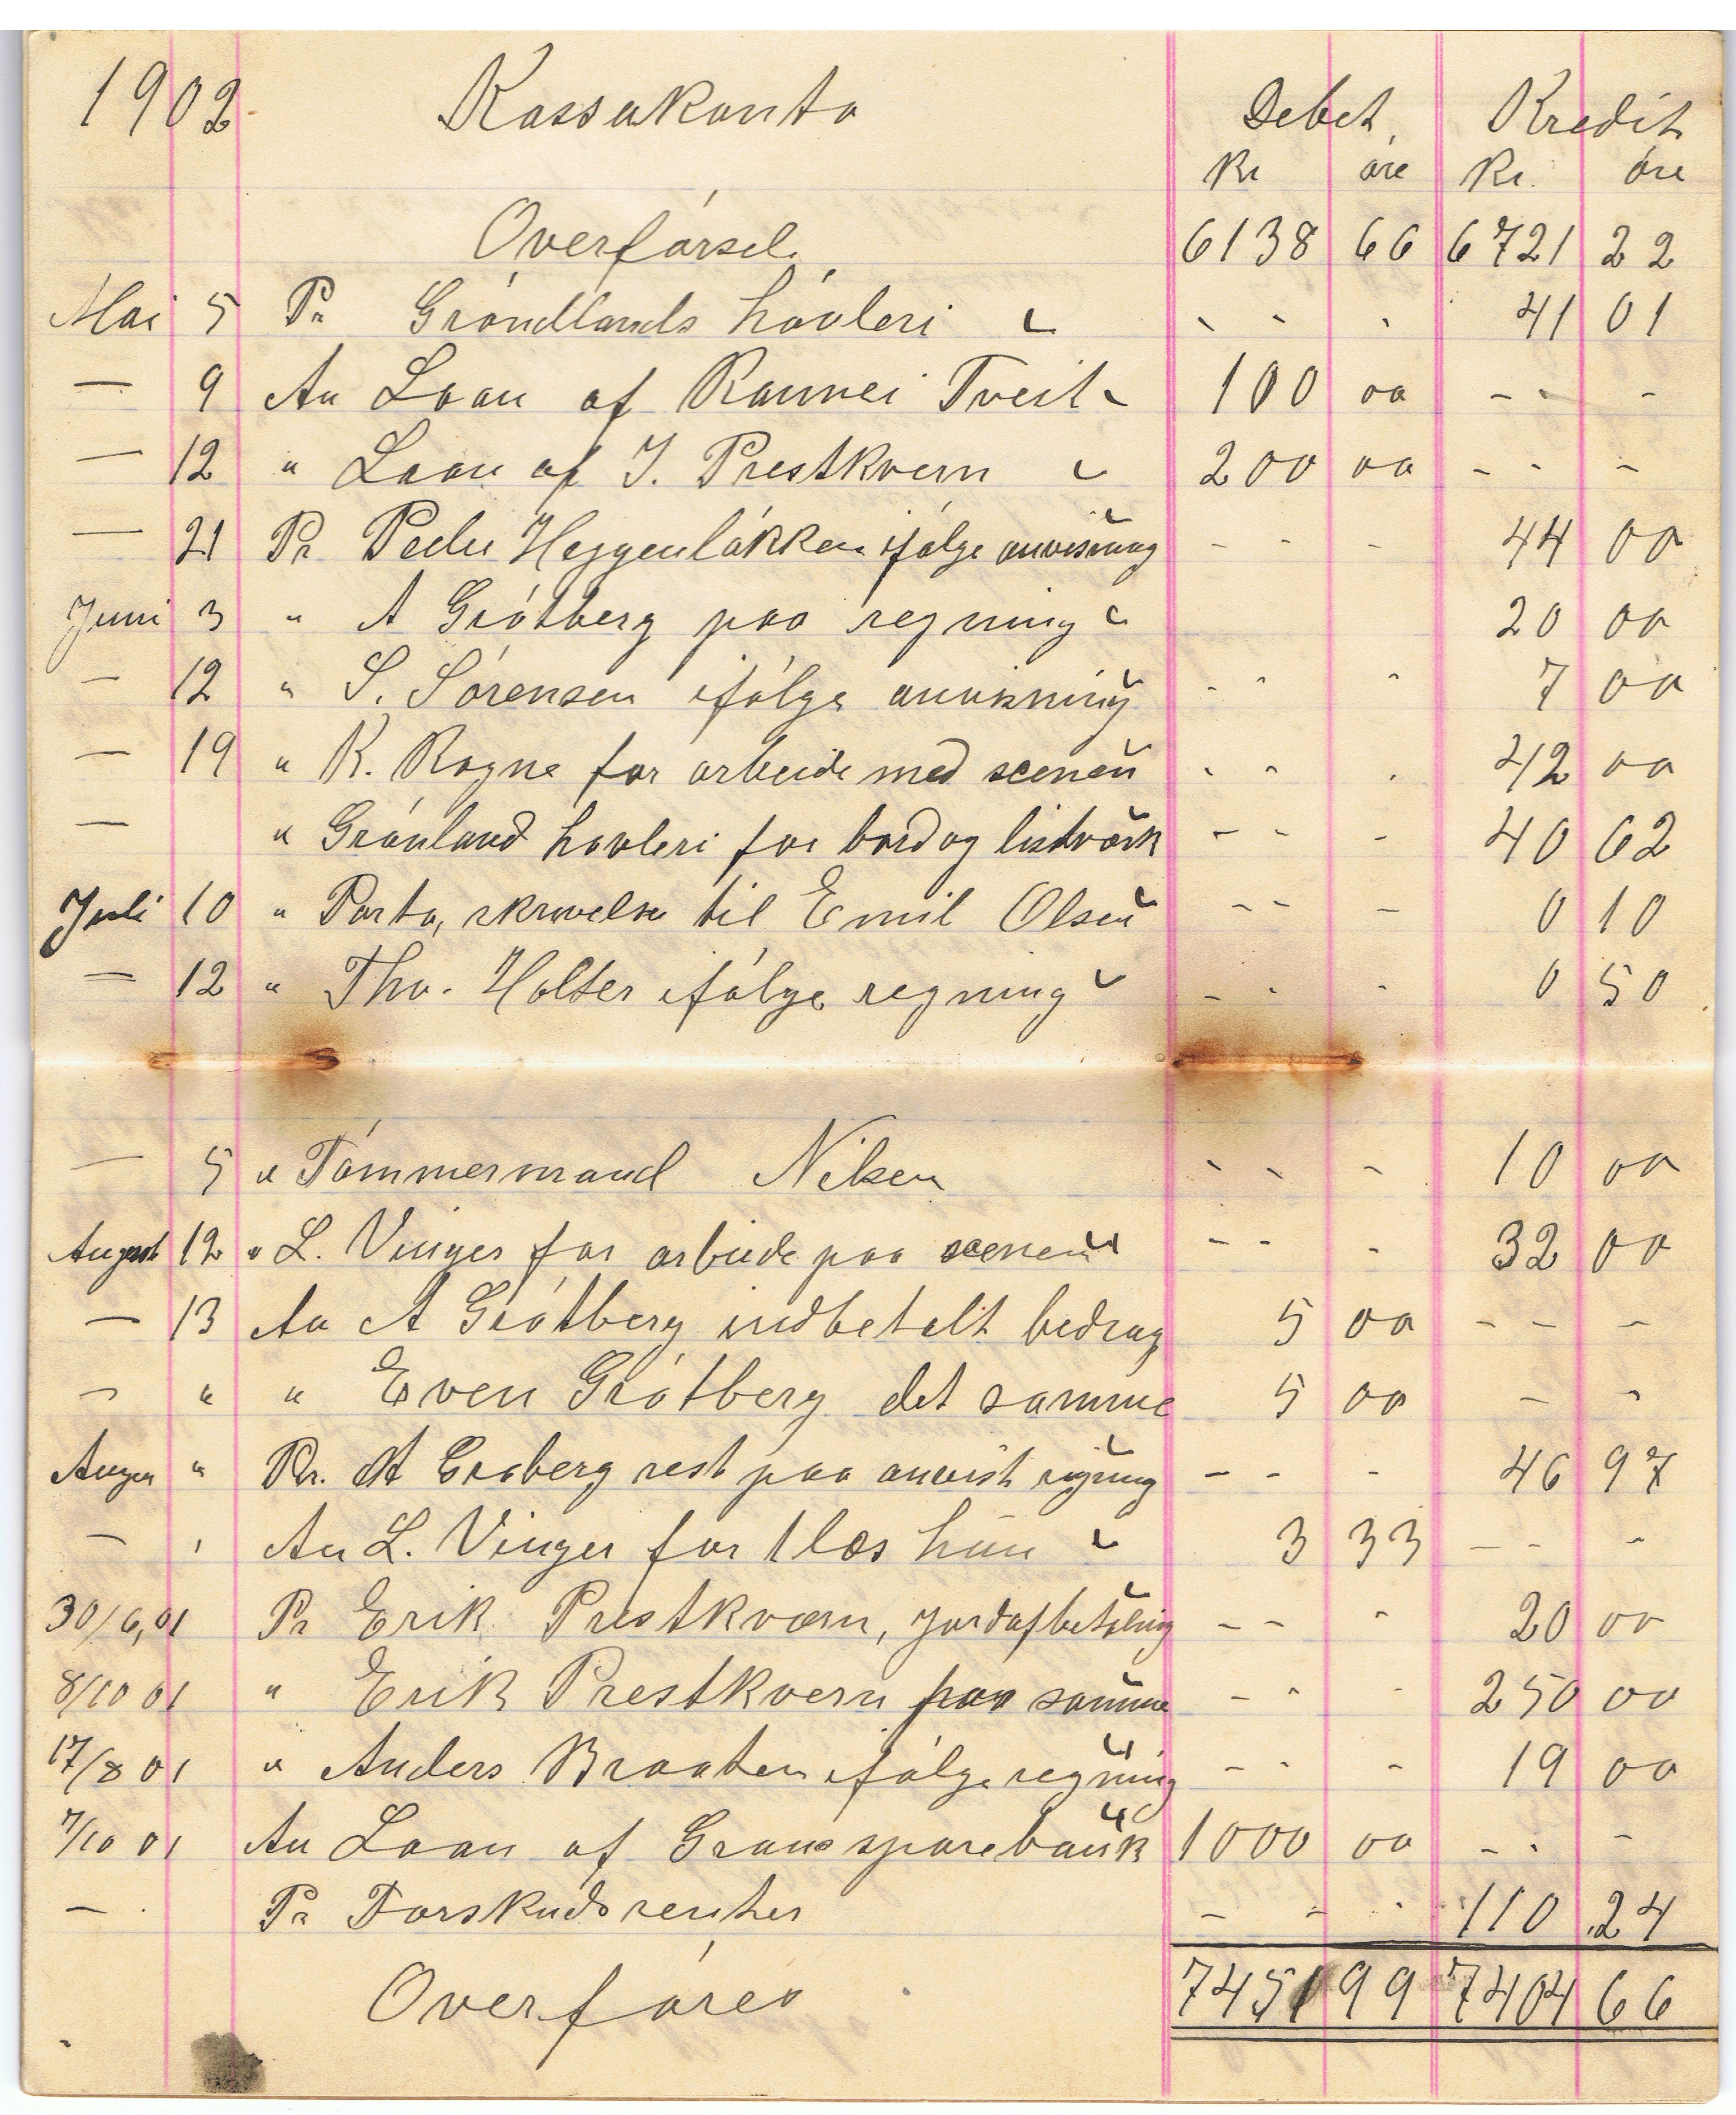 1902 Kassakonto Debet, Kredit
Kr øre Kr. øre
Overførsel. 6138 66 6721 22
Mai 5 Pr Gróndlands hóvleri 41 01
— 9 An Laan af Rannei Tveit 100 00 - - -
— 12 " Laan af I. Prestkvern 200 00 - - -
— 21 Pr Peder Heggenløkken ifølge anvisning - - - 44 00
Juni 3 " A Gråtberg paa regning 20 00
— 12 " S. Sórensen ifólge anvisning - - - 7 00
— 19 " K. Rogne for arbeide med scenen - - - 42 00
— " Grónland hovleri for bord og listverk - - - 40 62
Juli 10 " Porto, skrivelse til Emil Olsen - - - 0 10
— 12 " Tho. Holter ifólge regning - - - 0 50
— 5 " Tómmermand Nilsen - - - 10 00
August 12 " L. Vinger for arbeide paa scenen - - - 32 00
— 13 An A Gråtberg indbetalt bedrag 5 00 - - -
— " " Even Gråtberg det samme 5 00 - -
Augus " Pr. A Graberg rest paa anvist regning - - - 46 97
— " An L. Vinger for 1 læs hun 3 33 - - -
30/6,01 Pr Erik Prestkværn, jordafbetaling - - - 20 00
8/10 01 " Erik Prestkvern paa samme - - - 250 00
17/8 01 " Anders Braaten ifólge regning - - - 19 00
7/10 01 An Laan af Grans sparebank 1000 00 - - -
— Pr Forskudsrenter - - - 110 24
Overfóres 7451 99 7404 66